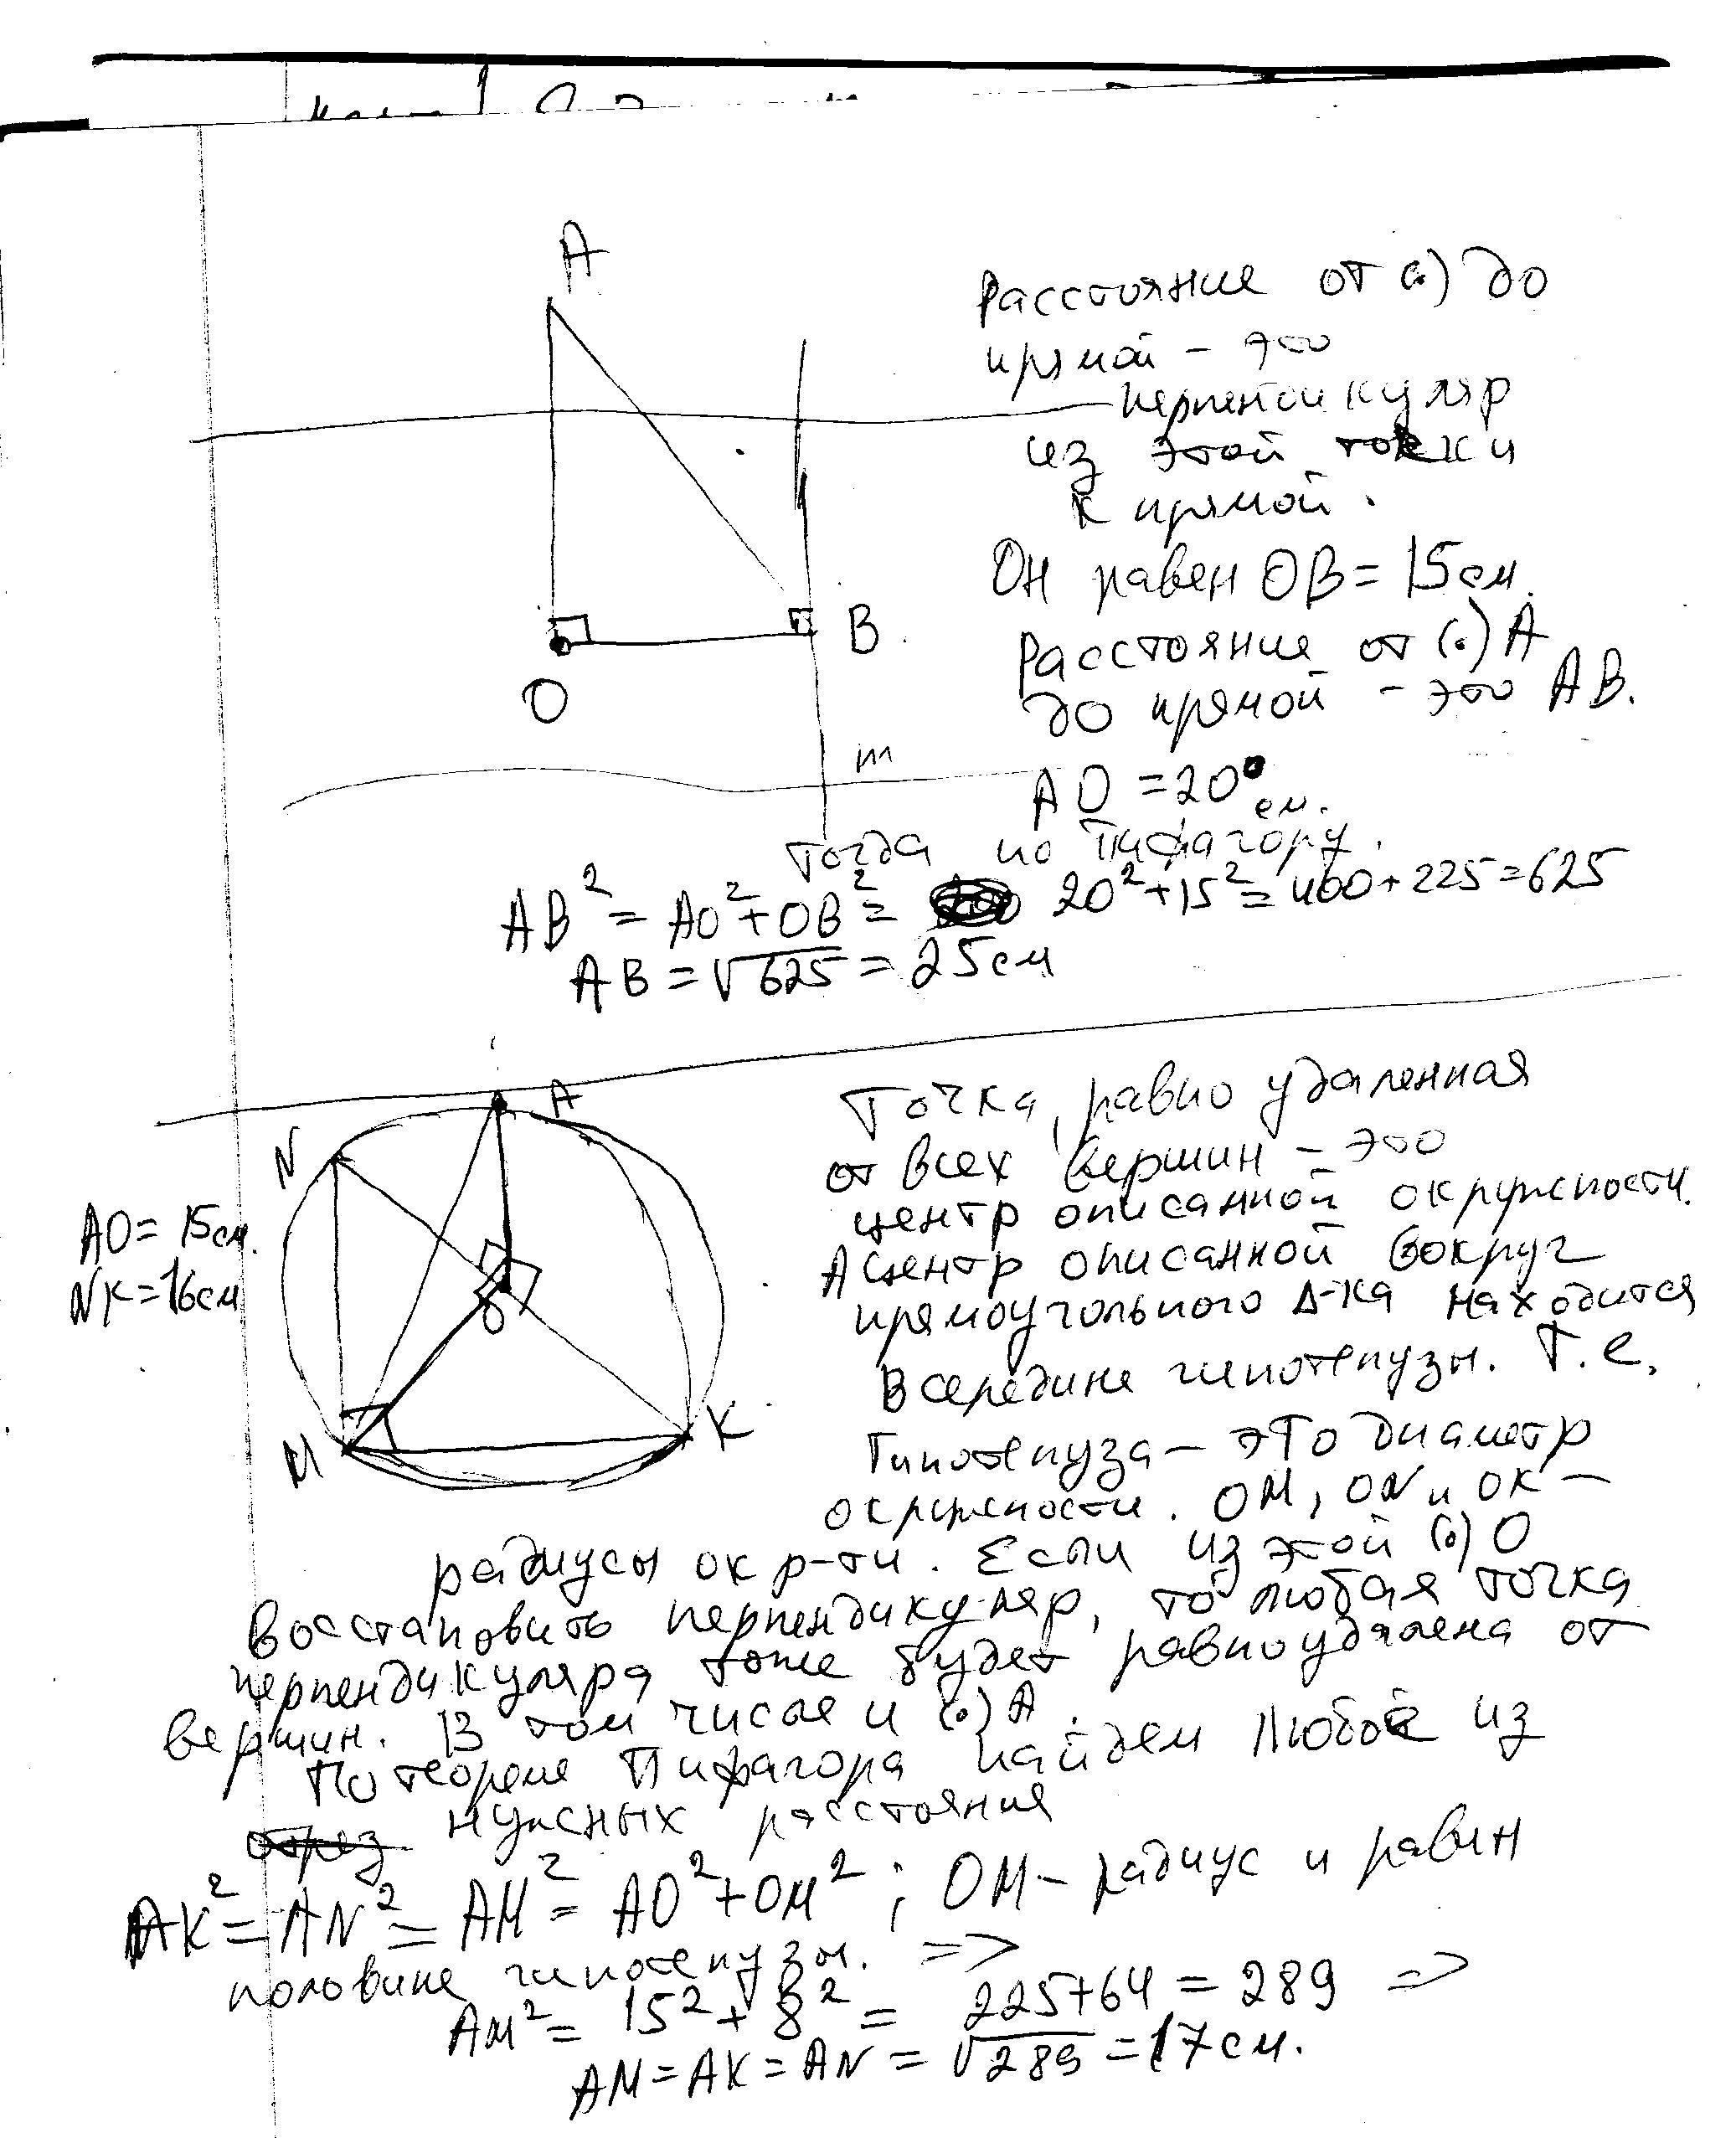 A
O
B
m
Расстояние от (.) до
прямой - это
перпендикуляр
из этой точки
к прямой.
Он равен OB = 15 см.
Расстояние от (.) A
до прямой - это AB.
AO = 20 см.
Тогда по Пифагору.
AB² = AO² + OB² = 20² + 15² = 400 + 225 = 625
AB = √625 = 25 см
A
N
O
M
K
AO = 15 см.
NK = 16 см
Точка, равно удаленная
от всех вершин - это
центр описанной окружности.
А центр описанной вокруг
прямоугольного Δ-ка находится
в середине гипотенузы. Т.е.
Гипотенуза - это диаметр
окружности. OM, ON и OK -
радиусы окр-ти. Если из этой (.) O
восстановить перпендикуляр, то любая точка
перпендикуляра тоже будет равноудалена от
вершин. В том числе и (.) A.
По теореме Пифагора найдем любое из
нужных расстояния
AK² = AN² = AM² = AO² + OM²; OM - радиус и равен
половине гипотенузы. =>
AM² = 15² + 8² = 225 + 64 = 289 =>
AM = AK = AN = √289 = 17 см.